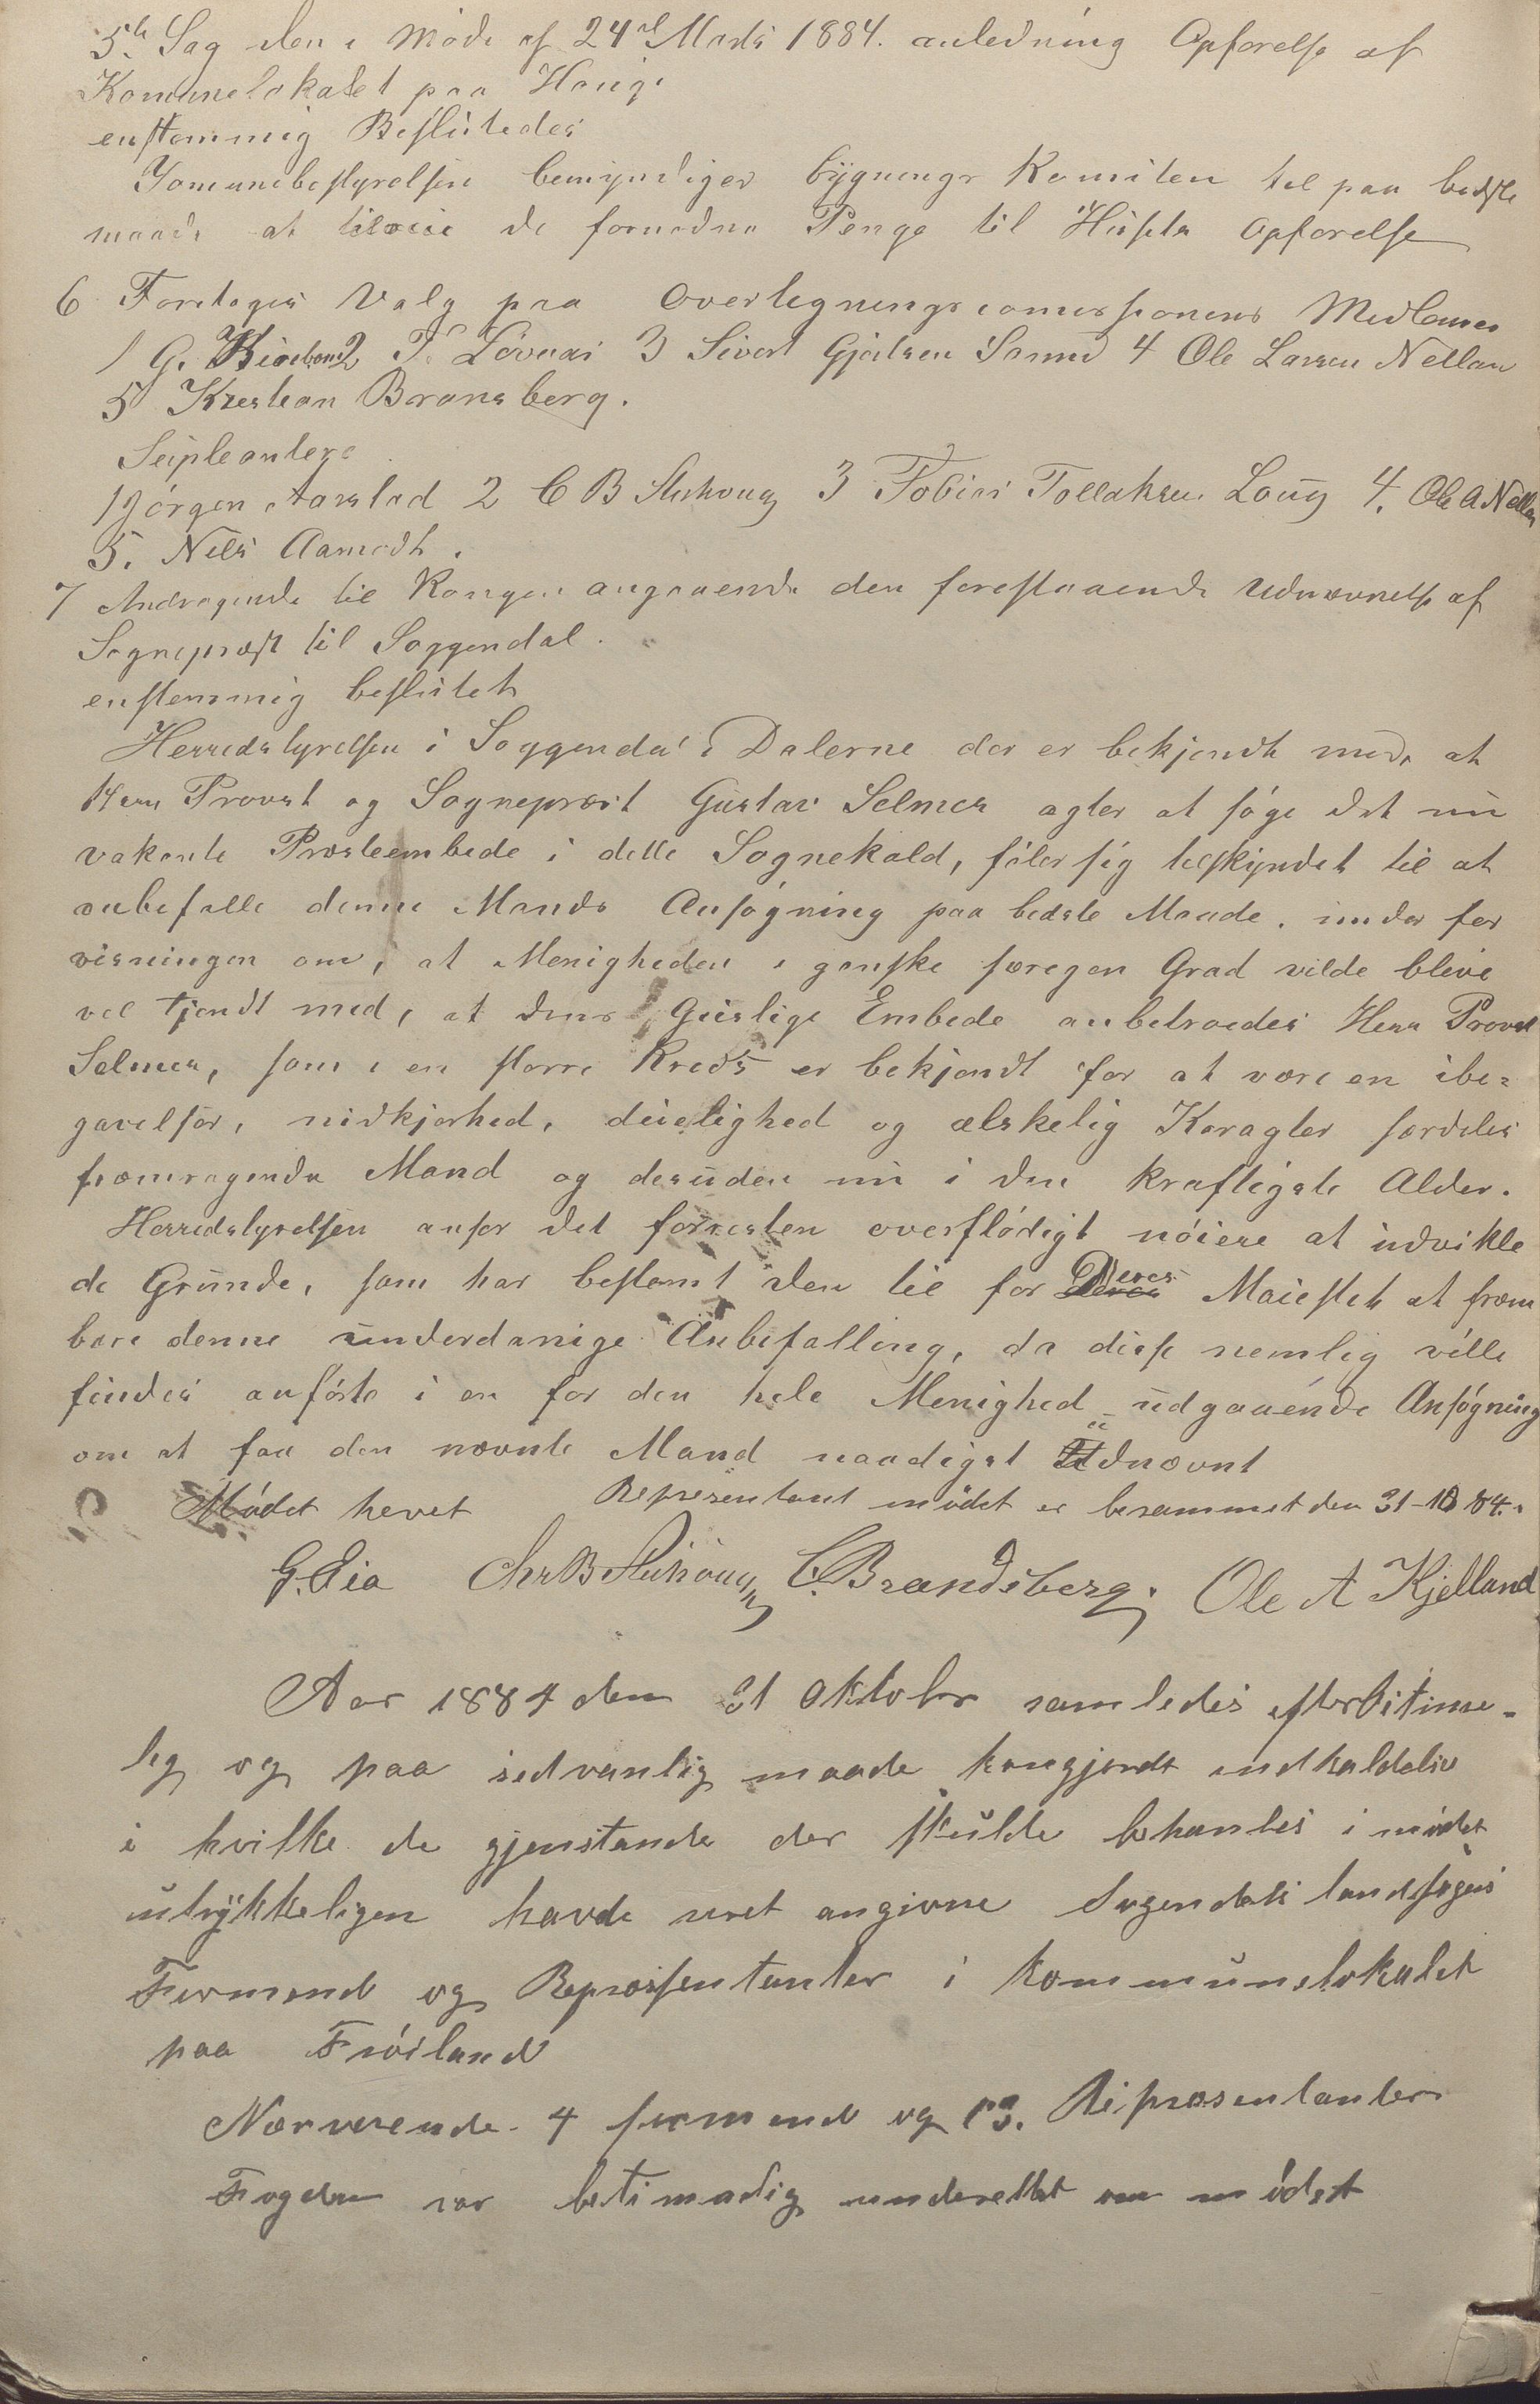 5te Sag den i Møde af 24de Marts 1884. anledning Opførelse af
Komunelokalet paa Hauge
enstemmig Besluttedes
Komunebestyrelsen bemyndiger bygnings Komiten til paa bedste
maade at tilveie de fornødne Penge til Husets Opførelse
6 Foretoges Valg paa Overligningscomissionens Medlemer
1 G. 2 T. Løvaas 3 Sivert Gjertsen Sannes 4 Ole Larsen Nellan
5 Krestian Bransberg.
Supleanter
1 Jørgen Aarstad 2 C B Stuhoug 3 Tobias Tollaksen Løug 4. Ole A Nellan
5. Nils Aamodt.
7 Andragende til Kongen angaaende den forestaaende Udnævnelse af
Sogneprest til Soggendal.
enstemmig besluttet
Herredstyrelsen i Soggendal i Dalerne der er bekjendt med, at
Herr Provst og Sogneprest Gustav Selmer agter at søge det nu
vakante Præsteembede i dette Sognekald, føler sig tilskyndet til at
anbefalle denne Mands Ansøgning paa bedste Maade. under for
visningen om, at Menigheden i ganske særegen Grad vilde blive
vel tjendt med, at dens Geislige Embede anbetroedes Herr Provst
Selmer, som i en større Kreds er bekjendt for at være en ibe=
gavelser, nidkjærhed, duelighed og ælskelig Karagter særdeles
fræmragende Mand og desuden nu i den kraftigste Alder.
Herredstyrelsen anser det forresten overflødigt nøiere at udvikle
de Grunde, som har bestemt den til for Deres Maiestet at fræm
bære denne underdanige Anbefalling, da disse nemlig ville
findes anførte i en for den hele Menighed udgaaende Ansøgning
om at faa den nævnte Mand naadigst Udnævnt
Mødet hevet Representant mødet er besammet den 31-10 84.
G. Eia Chr B Stuhoug C. Brandsberg. Ole A Kjelland
Aar 1884 den 31 Oktobr samledes efter bitime-
lig og paa sedvanlig maade kungjordt indkaldelse
i hvilke de gjenstande der skulde behanles i mødet
utrykkeligen havde veret angivne Sogendals landsogns
Formend og Repræsentanter i kommunelokalet
paa Frøiland
Nærverende 4 formend og 13. Repræsentanter
Fogden var betimadig underettet om mødet